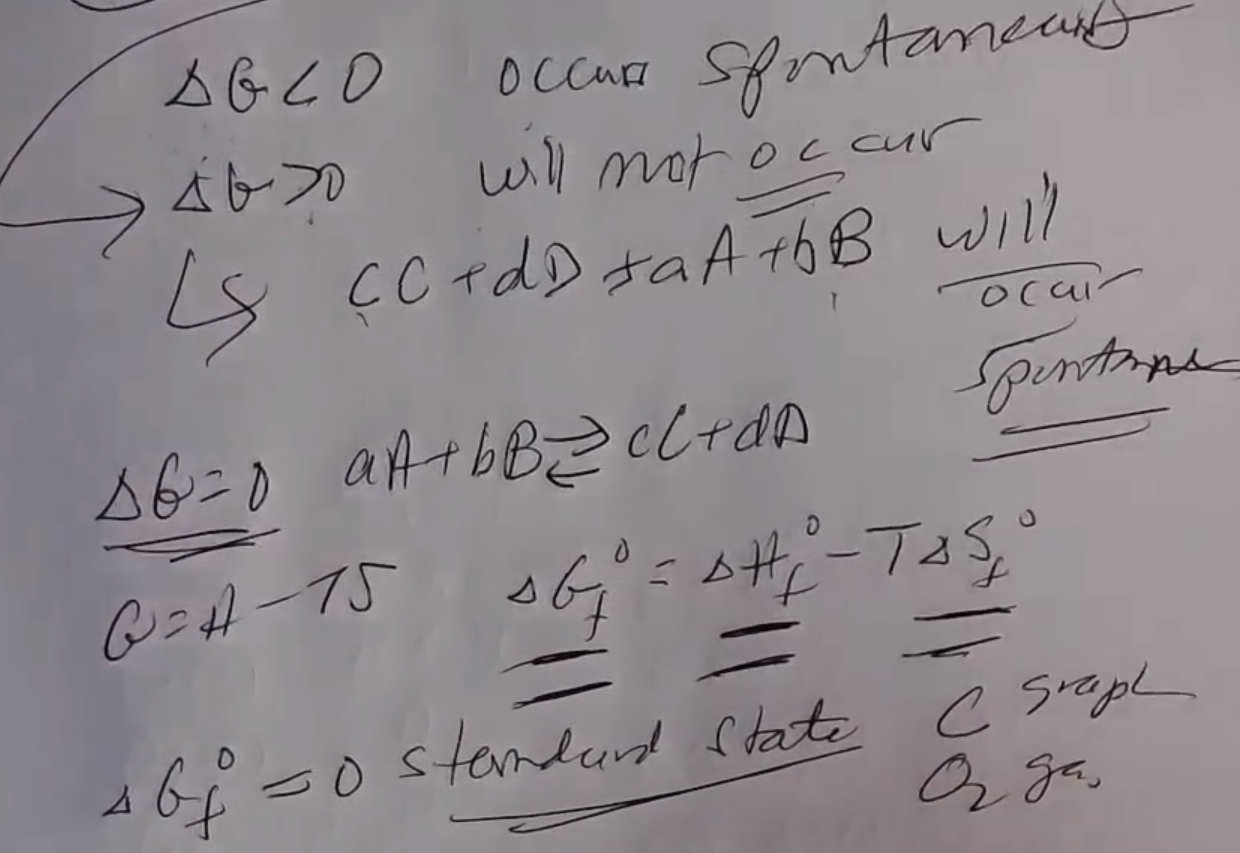 ΔG<0 occurs spontaneously
ΔG>0 will not occur
↳ cC+dD → aA+bB will occur
ΔG=0 aA+bB⇌cC+dD
G=H-TS ΔG°f = ΔH°f - TΔS°f
ΔG°f = 0 standard state C graph
O2 gas